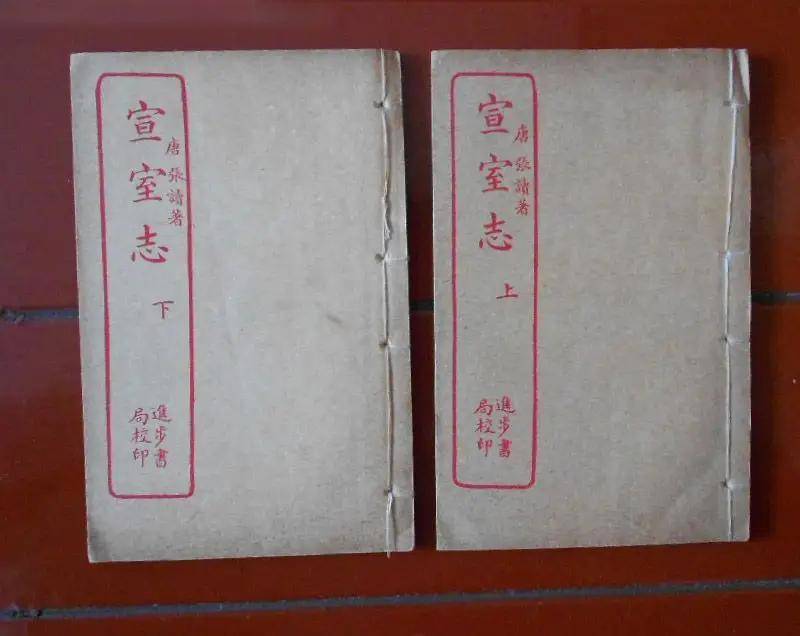 宣室志
唐張讀著
上
進步書
局校印
宣室志
唐張讀著
下
進步書
局校印